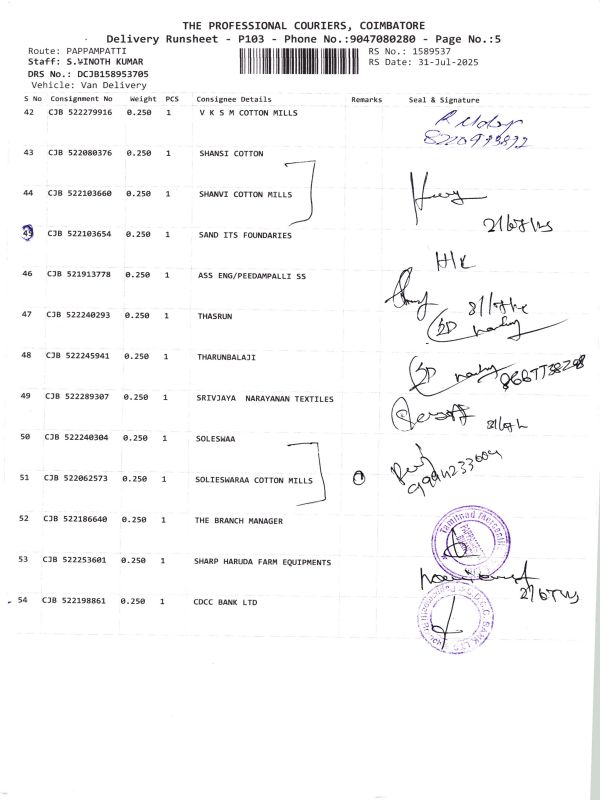 THE PROFESSIONAL COURIERS, COIMBATORE
Delivery Runsheet - P103 - Phone No.:9047080280 - Page No.:5
Route: PAPPAMPATTI
RS No.: 1589537
Staff: S.VINOTH KUMAR
RS Date: 31-Jul-2025
DRS No.: DCJB158953705
Vehicle: Van Delivery
S No Consignment No Weight PCS Consignee Details Remarks Seal & Signature
42 CJB 522279916 0.250 1 V K S M COTTON MILLS
43 CJB 522080376 0.250 1 SHANSI COTTON
44 CJB 522103660 0.250 1 SHANVI COTTON MILLS
45 CJB 522103654 0.250 1 SAND ITS FOUNDARIES
46 CJB 521913778 0.250 1 ASS ENG/PEEDAMPALLI SS
47 CJB 522240293 0.250 1 THASRUN
48 CJB 522245941 0.250 1 THARUNBALAJI
49 CJB 522289307 0.250 1 SRIVJAYA NARAYANAN TEXTILES
50 CJB 522240304 0.250 1 SOLESWAA
51 CJB 522062573 0.250 1 SOLIESWARAA COTTON MILLS
52 CJB 522186640 0.250 1 THE BRANCH MANAGER
Tamilnad Mercantile
53 CJB 522253601 0.250 1 SHARP HARUDA FARM EQUIPMENTS
54 CJB 522198861 0.250 1 CDCC BANK LTD